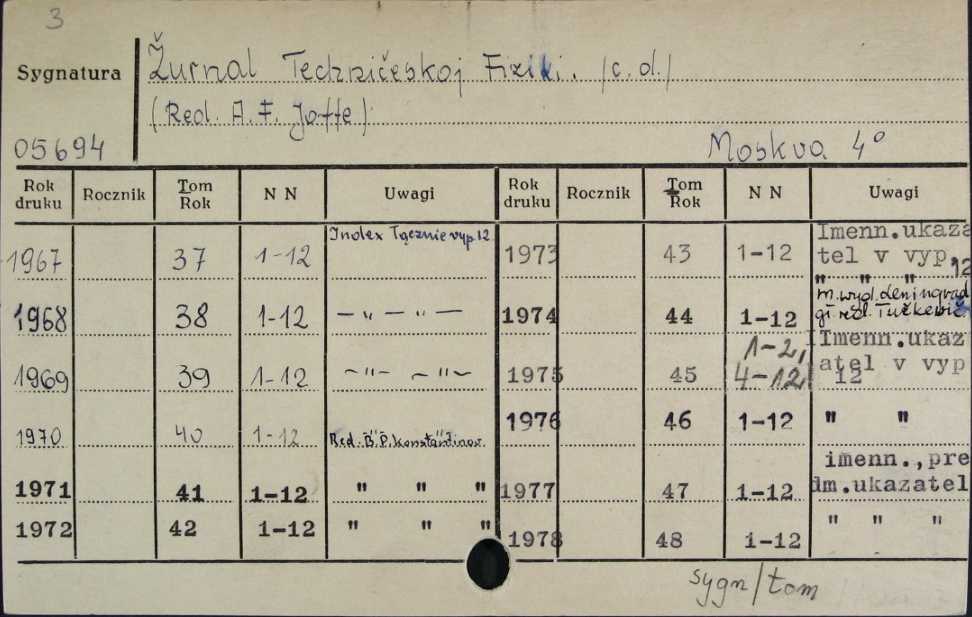 3
Sygnatura Žurnal Techničeskoj Fiziki. /c.d./
(Red. A. F. Joffe)
05694 Moskva 4°
Rok druku Rocznik Tom Rok N N Uwagi Rok druku Rocznik Tom Rok N N Uwagi
1967 37 1-12 Index Łącznie vyp. 12 1973 43 1-12 Imenn.ukaza tel v vyp. 12
1968 38 1-12 — " — " — 1974 44 1-12 " " " m. wyd. Leningrad gł. red. Tučkevič
1969 39 1-12 ~ " ~ ~ " ~ 1975 45 1-2, 4-12 Imenn.ukaz atel v vyp 12
1970 40 1-12 " " Red. B. P. Konstantinov. 1976 46 1-12 " "
1971 41 1-12 " " " 1977 47 1-12 imenn.,pre dm.ukazatel
1972 42 1-12 " " " 1978 48 1-12 " " "
sygn/tom